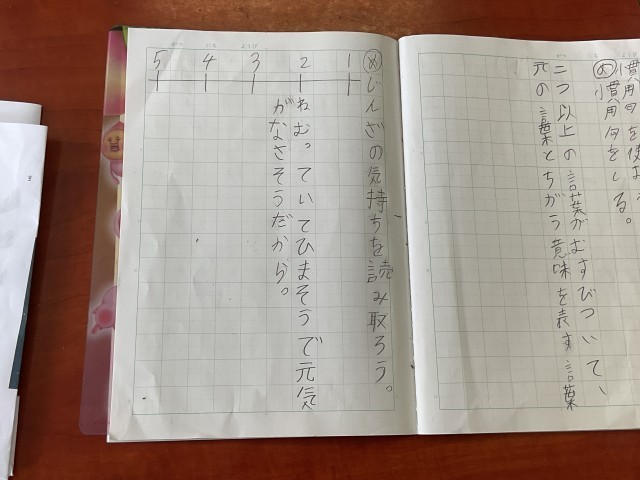 慣用句を使おう
め 慣用句をしる。
二つ以上の言葉がむすびついて、
元の言葉とちがう意味を表す言葉
め じんざの気持ちを読み取ろう。
5 4 3 2 1
ねむっていてひまそうで元気
がなさそうだから。